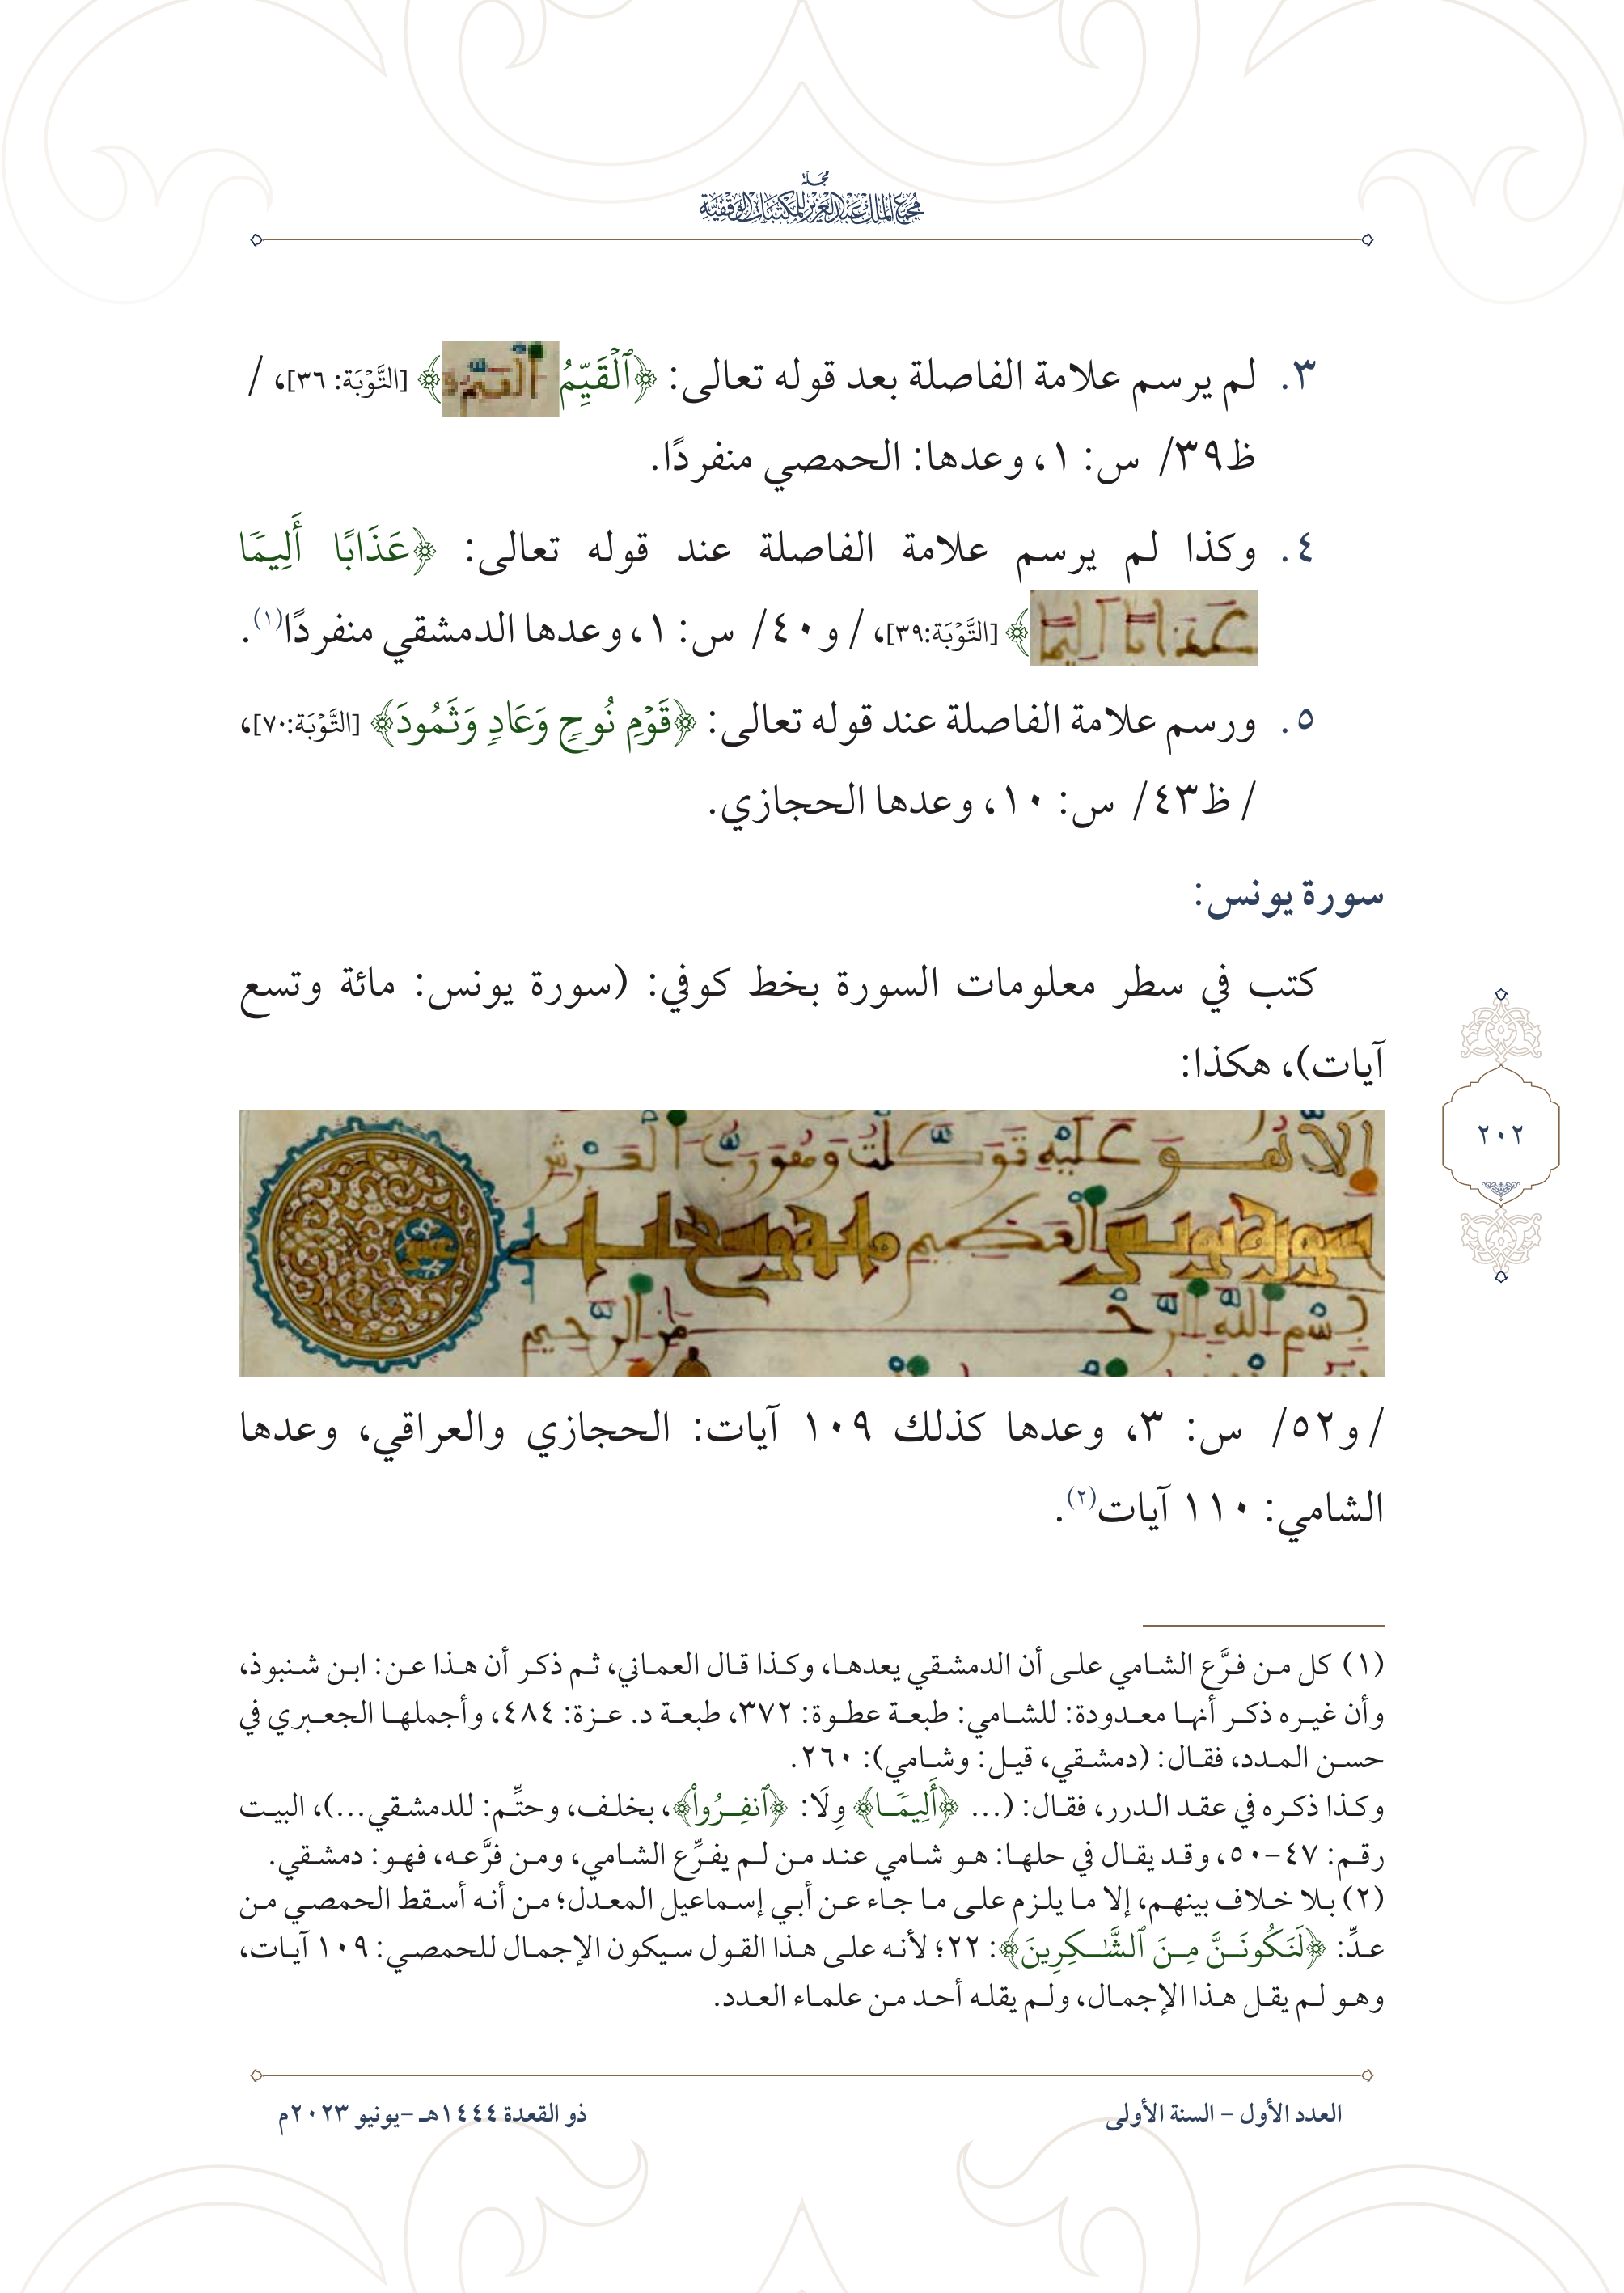 مجلة
مجمع الملك عبدالعزيز للمكتبات الوقفية
٣. لم يرسم علامة الفاصلة بعد قوله تعالى: ﴿ٱلۡقَيِّمُ﴾ [التَّوۡبَة: ٣٦]، /
ظ٣٩/ س: ١، وعدها: الحمصي منفردًا.
٤. وكذا لم يرسم علامة الفاصلة عند قوله تعالى: ﴿عَذَابًا أَلِيمٗا
﴾ [التَّوۡبَة:٣٩]، / و٤٠/ س: ١، وعدها الدمشقي منفردًا(١).
٥. ورسم علامة الفاصلة عند قوله تعالى: ﴿قَوۡمِ نُوحٖ وَعَادٖ وَثَمُودَ﴾ [التَّوۡبَة:٧٠]،
/ ظ٤٣/ س: ١٠، وعدها الحجازي.
سورة يونس:
كتب في سطر معلومات السورة بخط كوفي: (سورة يونس: مائة وتسع
آيات)، هكذا:
٢٠٢
إلا هو عليه توكلت وهو رب العرش
سورة يونس العظيم مائة وتسع آيات
بسم الله الرحمن الرحيم
/ و٥٢/ س: ٣، وعدها كذلك ١٠٩ آيات: الحجازي والعراقي، وعدها
الشامي: ١١٠ آيات(٢).
(١) كل من فرَّع الشامي على أن الدمشقي يعدها، وكذا قال العماني، ثم ذكر أن هذا عن: ابن شنبوذ،
وأن غيره ذكر أنها معدودة: للشامي: طبعة عطوة: ٣٧٢، طبعة د. عزة: ٤٨٤، وأجملها الجعبري في
حسن المدد، فقال: (دمشقي، قيل: وشامي): ٢٦٠.
وكذا ذكره في عقد الدرر، فقال: (... ﴿أَلِيمٗا﴾ وِلَا: ﴿ٱنفِرُواْ﴾، بخلف، وحتِّم: للدمشقي...)، البيت
رقم: ٤٧-٥٠، وقد يقال في حلها: هو شامي عند من لم يفرِّع الشامي، ومن فرَّعه، فهو: دمشقي.
(٢) بلا خلاف بينهم، إلا ما يلزم على ما جاء عن أبي إسماعيل المعدل؛ من أنه أسقط الحمصي من
عدِّ: ﴿لَنَكُونَنَّ مِنَ ٱلشَّٰكِرِينَ﴾: ٢٢؛ لأنه على هذا القول سيكون الإجمال للحمصي: ١٠٩ آيات،
وهو لم يقل هذا الإجمال، ولم يقله أحد من علماء العدد.
العدد الأول – السنة الأولى
ذو القعدة ١٤٤٤هـ –يونيو ٢٠٢٣م